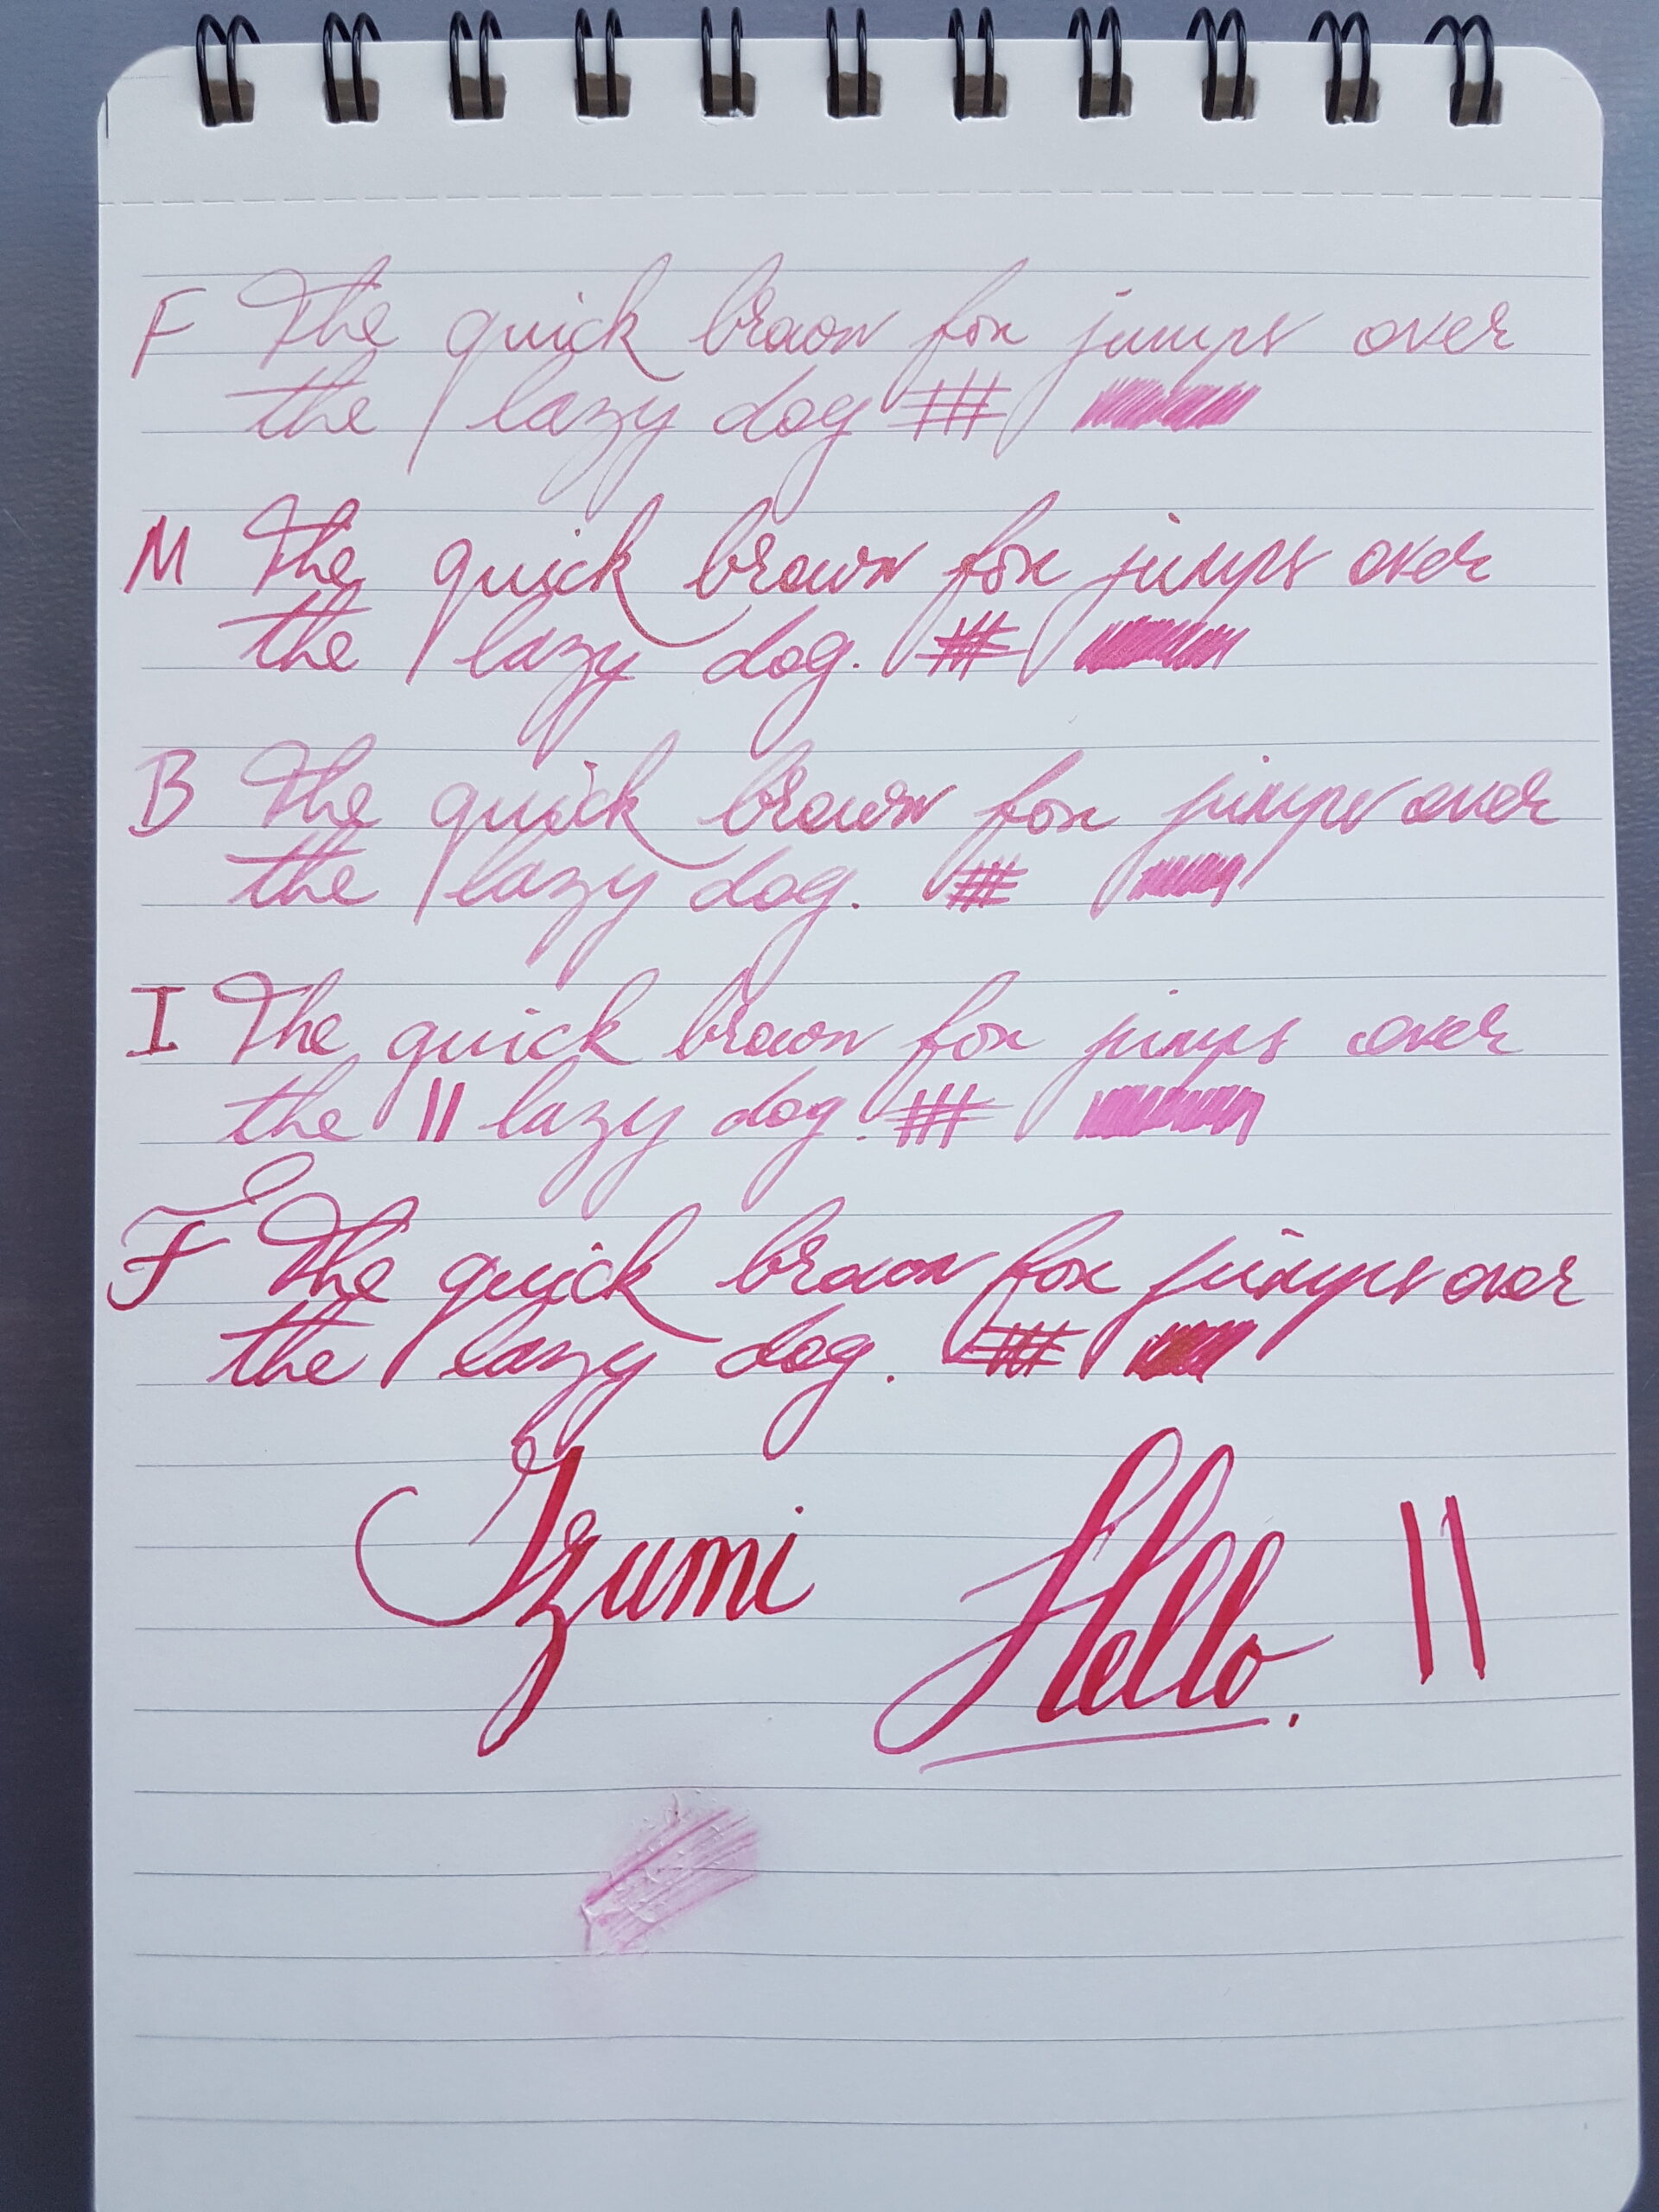 F The quick brown fox jumps over
the lazy dog
M The quick brown fox jumps over
the lazy dog.
B The quick brown fox jumps over
the lazy dog.
I The quick brown fox jumps over
the lazy dog.
F The quick brown fox jumps over
the lazy dog.
Izumi Hello.